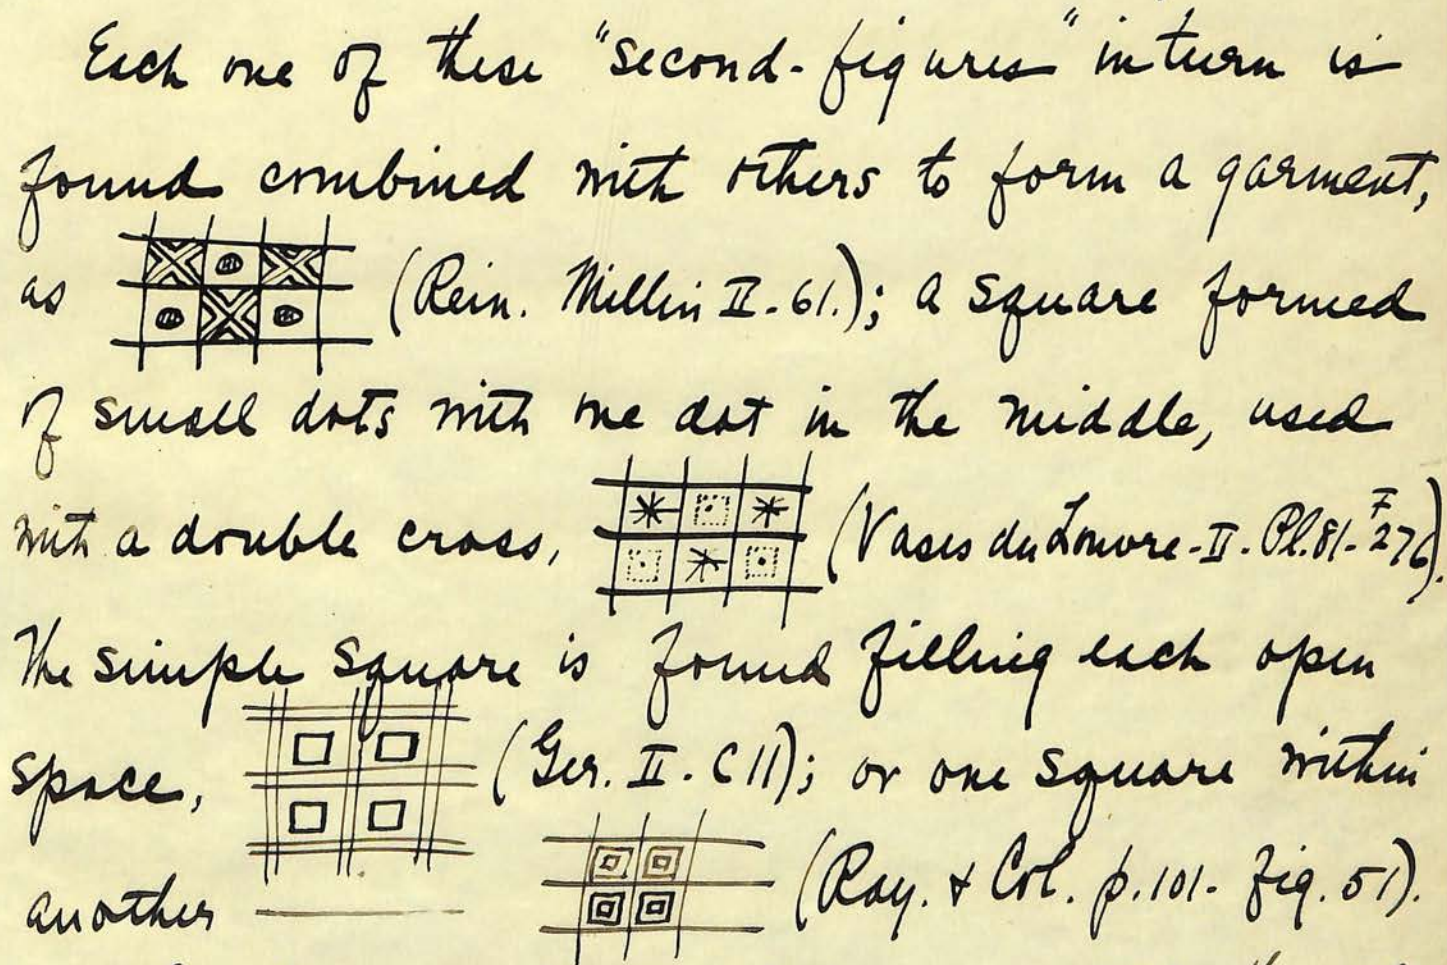 Each one of these "second-figures" in turn is
found combined with others to form a garment,
as (Rein. Millin II-61.); a square formed
of small dots with one dot in the middle, used
with a double cross, (Vases du Louvre-II-Pl.81-F276).
The simple square is found filling each open
space, (Ger. II. C11); or one square within
another (Ray. & Col. p.101- fig. 51).